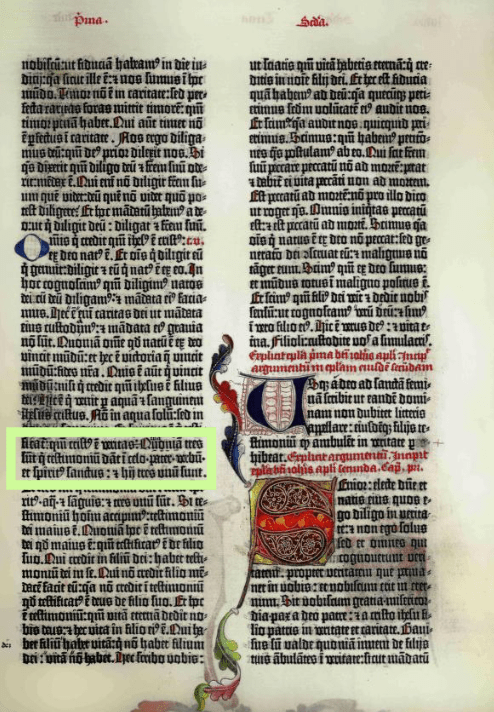 Prima.
Secunda.
nobiscū: ut fiduciam habeam⁹ in die iu-
dicij: qa sicut ille ē: ⁊ nos sumus ī hoc
mūdo. Timor nō ē in caritate: sed per-
fecta caritas foras mittit timorē: qm̄
timor penā habet. Qui aūt timet nō
ē p̄fectus ī caritate. Nos ergo diliga-
mus deū: qm̄ de⁹ prior dilexit nos. Si
q̄s dixerit qm̄ diligo deū ⁊ fratrē suū ode-
rit: mēdax ē. Qui enī nō diligit fratrē su-
um quē videt: deū quē nō videt quō po-
test diligere? Et hoc mādatū habem⁹ a de-
o: ut q̄ diligit deū: diligat ⁊ fratrē suū.
Omnis q̄ credit qm̄ ihesus ē cristus: c. v.
ex deo nat⁹ ē. Et oīs q̄ diligit eū
q̄ genuit: diligit ⁊ eū q̄ nat⁹ ē ex eo. In
hoc cognoscim⁹ qm̄ diligim⁹ natos
dei: cū deū diligam⁹: ⁊ mādata ei⁹ facia-
mus. Hec ē enī caritas dei: ut mādata
eius custodiam⁹: ⁊ mādata ei⁹ gravia
nō sūt. Quoniā omne qd̄ natū ē ex deo
vincit mūdū: et hec ē victoria q̄ vincit
mūdū: fides nr̄a. Quis ē aūt q̄ vincit
mūdū: nisi q̄ credit qm̄ ihesus ē filius
dei? Hic ē q̄ venit p̄ aquā ⁊ sanguinem
ihesus cristus. Nō in aqua solū: sed in
ficat: qm̄ crist⁹ ē veritas. Qm̄ tres
sūt q̄ testimoniū dāt ī celo: pater verbū
et spirit⁹ sanctus: ⁊ hij tres unū sunt.
rit⁹ aq̄ ⁊ sāguis: et tres unū sūt. Si te-
stimoniū hoīm accipim⁹: testimoniū
dei maius ē. Quoniā hoc ē testimoniū
dei qd̄ maius ē: qm̄ testificat⁹ ē de filio
suo. Qui credit in filiū dei: habet testi-
moniū dei in se. Qui nō credit filio mē-
dacē facit eū: qa nō credit ī testimoniū
qd̄ testificat⁹ ē deus de filio suo. Et hoc
ē testimoniū: qm̄ vitā eternā dedit no-
bis deus: ⁊ hec vita in filio ei⁹ ē. Qui ha-
bet filiū habet vitā: q̄ nō habet filium
dei: vitā nō habet. Hec scribo vobis:
ut sciatis qm̄ vitā habetis eternā: q̄ cre-
ditis in noīe filij dei. Et hec est fiducia
quā habem⁹ ad deū: qa quecūq̄ petie-
rimus scdm̄ volūtatē ei⁹ audit nos.
Et scim⁹ qa audit nos quicquid peti-
erimus. Scimus: qm̄ habem⁹ peticō-
nes q̄s postulam⁹ ab eo. Qui scit fratrē
suū peccare peccatū nō ad mortē: petat
⁊ dabit̄ ei vita peccāti nōn ad mortem.
Est peccatū ad mortē: nō pro illo dico
ut roget q̄s. Omnis iniq̄tas peccatū
est: ⁊ est peccatū ad mortē. Scimus qa
oīs q̄ natus ē ex deo nō peccat: sed ge-
neratio dei cōservat eū: ⁊ malignus nō
tāget eum. Scim⁹ qm̄ ex deo sumus:
et mūdus totus ī maligno positus ē.
Et scim⁹ qm̄ fili⁹ dei venit ⁊ dedit nobis
sensū: ut cognoscam⁹ verū deū: ⁊ sim⁹
ī vero filio ei⁹. Hic ē verus de⁹: ⁊ vita e-
terna. Filioli: custodite vos a simulacris.
Explicit epl̄a prima bt̄i iohīs apl̄i. Incipit
argumentū in epl̄am eiusdē secundam
Usq̄ adeo ad sanctā femi-
nā scribit ut eandē domi-
nam non dubitet litteris
appellare: eiusdēq̄ filijs te-
stimoniū q̄ ambulēt in veritate p̄-
hibeat. Explicit argumentū. Incipit
epl̄a bt̄i iohīs apl̄i secunda. Cap. pri.
Senior: electe dn̄e et
natis eius quos e-
go diligo in verita-
te: ⁊ non ego solus
sed et omnes qui
cognoverunt veri-
tatem: propter veritatem que p̄ma-
net in vobis: et nobiscum erit in eter-
num. Sit vobiscum gratia misericor-
dia pax a deo patre: ⁊ a cristo ihesu fi-
lio patris in veritate et caritate. Gavi-
sus sū valde quoniā inveni de filijs
tuis ābulātes ī veritate: sicut mādatū